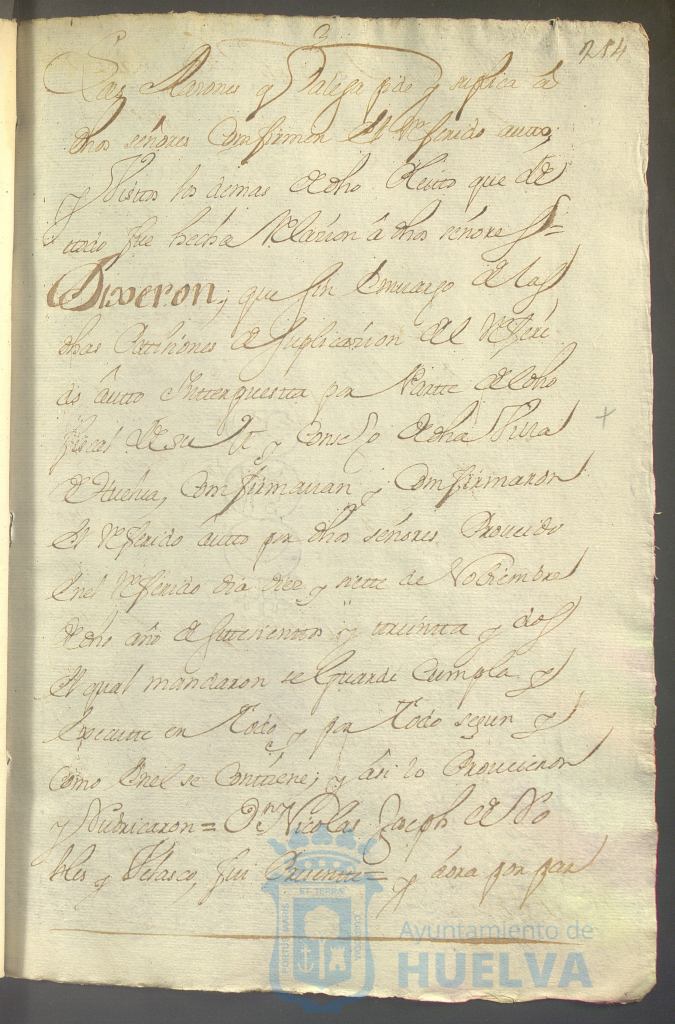 254
las Rasones q Dalega pide y suplica â
dhos señores Confirmen El Referido autto,
y Vistos los demas de dho Pleitto que de
todo fue hecha Relazion â dhos señores =
Dixeron, que sin Envargo de las
dhas Petiziones de suplicazion del Referi
do âutto Interpuesta por Partte de dho
fiscal de su M. y Conselo de dha Villa
de Huelva, Confirmavan y Confirmaron
El Referido âutto por dhos señores Proveido
En el Referido dia diez y siette de Noviembre
de dho año de settesientos y ttreintta y dos
El qual mandaron se Guarde Cumpla y
Execute en Todo, y por Todo segun y
Como En el se Conttiene; y âsi lo Proveieron
y Rubricaron = Dn. Nicolas Joseph de Ro
bles y Velasco, fui Presentte = y âora por par
Ayuntamiento de
HUELVA